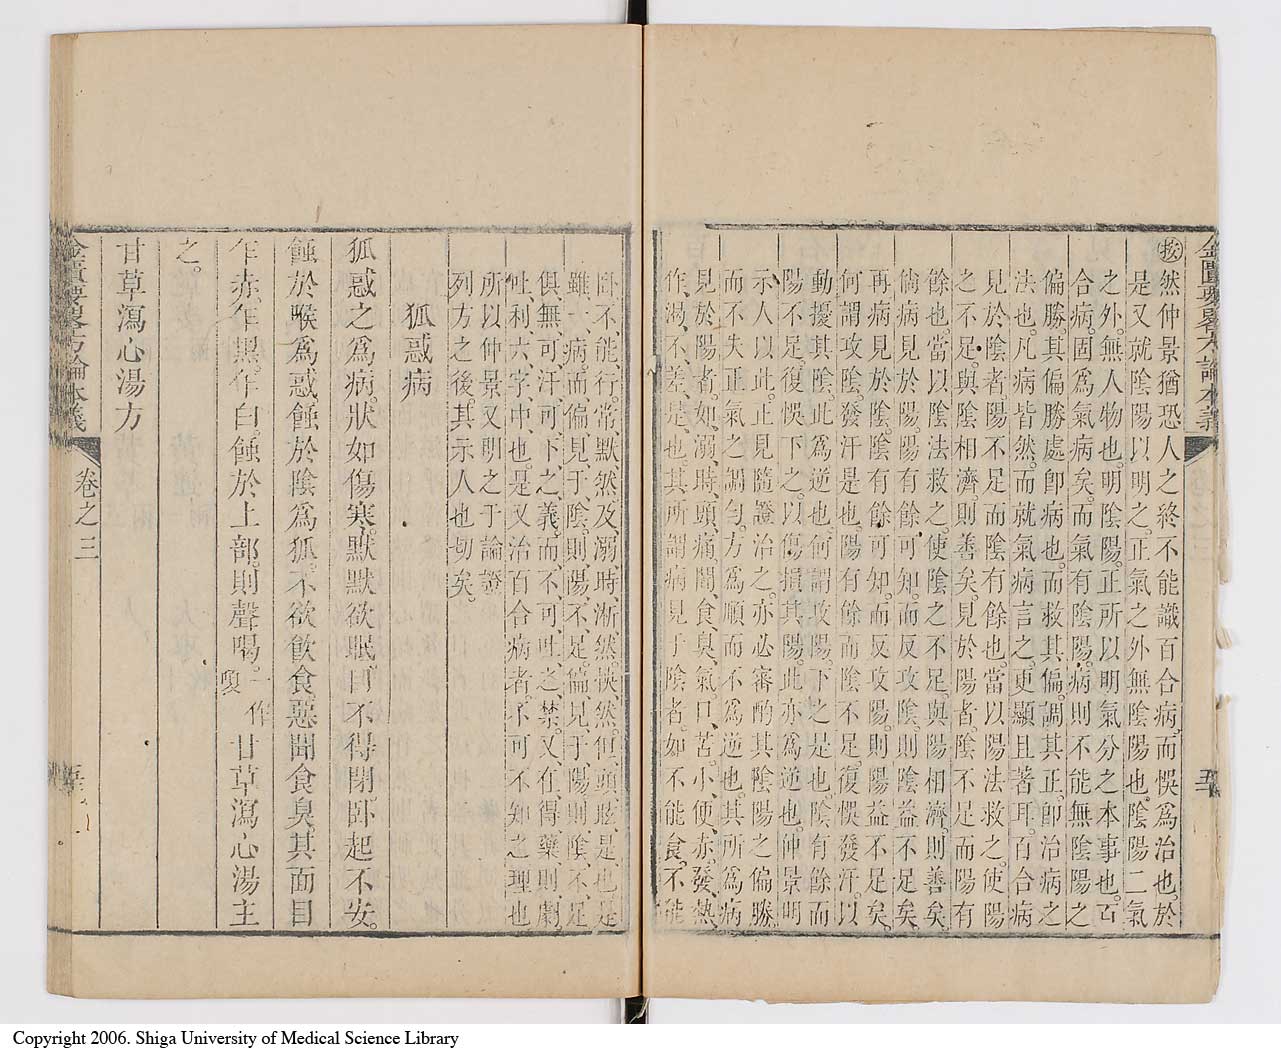 金匱要畧方論本義
五
㊩然仲景猶恐人之終不能識百合病而悞爲治也於
是又就陰陽以明之正氣之外無陰陽也陰陽二氣
之外無人物也明陰陽正所以明氣分之本事也百
合病固爲氣病矣而氣有陰陽病則不能無陰陽之
偏勝其偏勝處卽病也而救其偏調其正卽治病之
法也凡病皆然而就氣病言之更顯且著耳百合病
見於陰者陽不足而陰有餘也當以陽法救之使陽
之不足與陰相濟則善矣見於陽者陰不足而陽有
餘也當以陰法救之使陰之不足與陽相濟則善矣
倘病見於陽陽有餘可知而反攻陰則陰益不足矣
再病見於陰陰有餘可知而反攻陽則陽益不足矣
何謂攻陰發汗是也陽有餘而陰不足復悞發汗以
動擾其陰此爲逆也何謂攻陽下之是也陰有餘而
陽不足復悞下之以傷損其陽此亦爲逆也仲景明
示人以此正見隨證治之亦必審酌其陰陽之偏勝
而不失正氣之調勻方爲順而不爲逆也其所爲病
見於陽者如溺時頭痛聞食臭氣口苦小便赤發熱
作渴不差是也其所謂病見于陰者如不能食不能
卧不能行常默然及溺時淅然怏然但頭眩是也是
雖一病而偏見于陰則陽不足偏見于陽則陰不足
俱無可汗可下之義而不可吐之禁又在得藥則劇
吐利六字中也是又治百合病者不可不知之理也
所以仲景又明之于論證
列方之後其示人也切矣
狐惑病
狐惑之爲病狀如傷寒默默欲眠目不得閉卧起不安
蝕於喉爲惑蝕於陰爲狐不欲飲食惡聞食臭其面目
乍赤乍黑乍白蝕於上部則聲喝一作嗄甘草瀉心湯主
之
甘草瀉心湯方
金匱要畧方論本義
卷之三